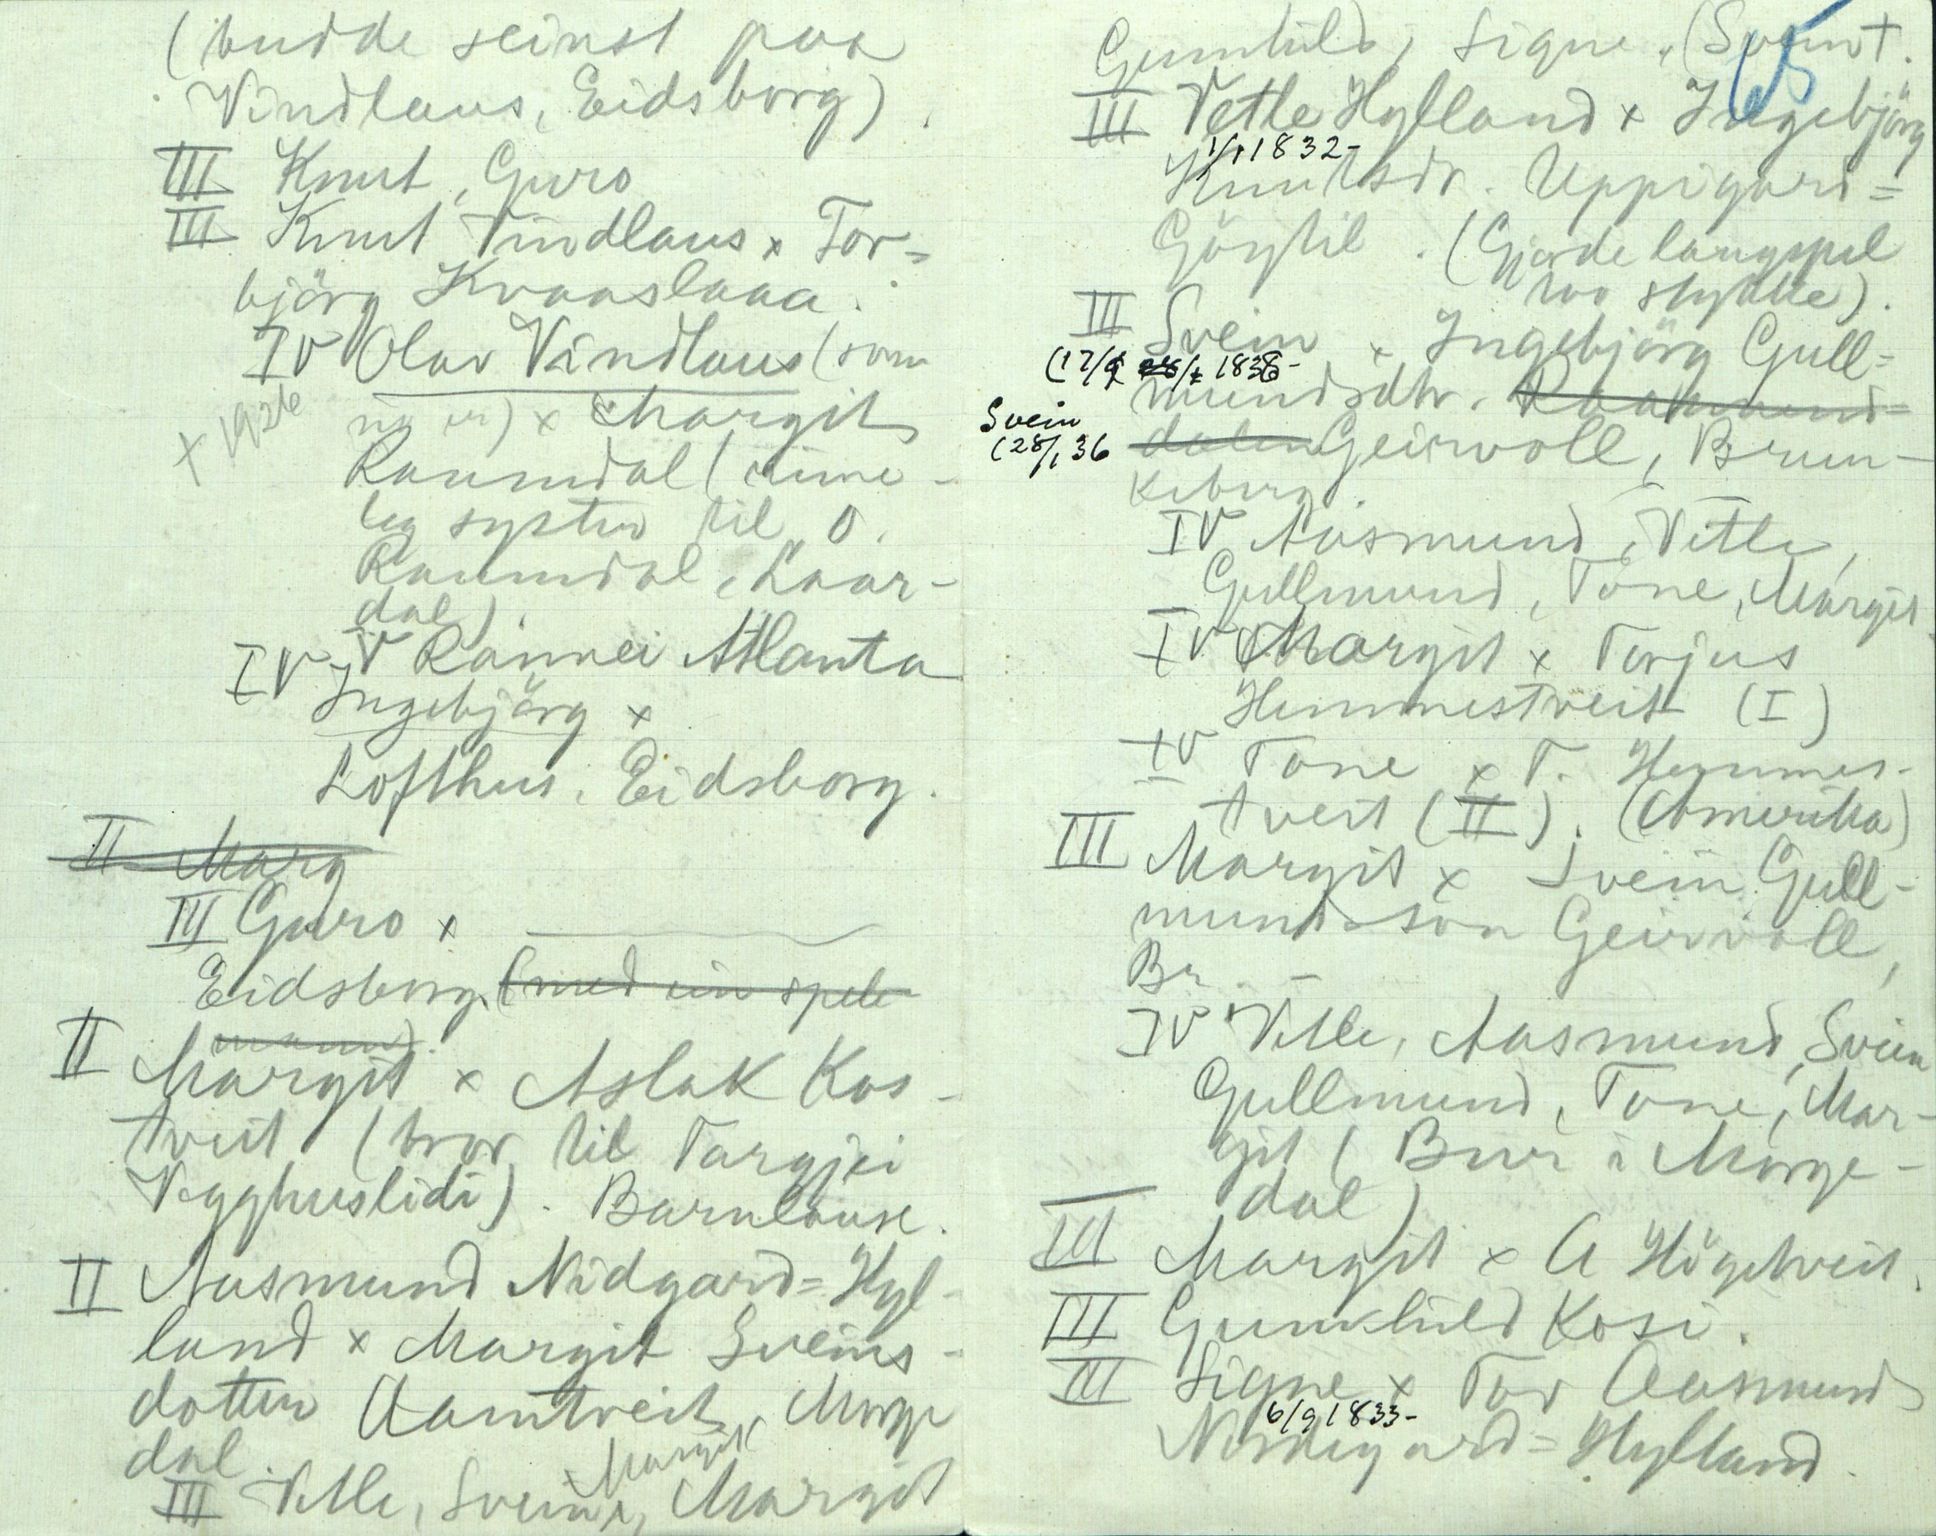 (budde seinst paa
Vindlaus, Eidsborg).
III Knut, Guro
III Knut Vindlaus x Tor=
björg Kvaaslaaa.
IV Olav Vindlaus (som
no er) x Margit
+ 1926
Raumdal (rime-
leg syster til O.
Raumdal, Laar-
dal).
V Rannei Atlanta
IV Ingebjörg x
Lofthus, Eidsborg.
II Marg
III Guro x
Eidsborg. (med ein spele
mann).
II Margit x Aslak Kos-
tveit (bror til Targjei
Vegghuslidi). Barnlause.
II Aasmund Nidgard=Hyl-
land x Margit Sveins-
dotter Aamtveit, Morge
dal.
Margit
III Vetle, Svein, Margit
Gunhild, Signe. (Svein +.
65
III Vetle Hylland x Ingebjörg
1832-
Knutsdr. Uppigard=
Göytil. (Gjorde langspel
too stykke).
III Svein x Ingebjörg Gull=
(17/9 28/1 1836-
mundsdtr. Raamund=
Svein
(28/1 36
dalen Geirvoll, Brun-
keberg.
IV Aasmund, Vetle,
Gullmund, Tone, Margit.
IV Margit x Torjus
Hemmestveit (I)
IV Tone x T. Hemmes-
tveit (II). (Amerika)
III Margit x Svein Gull-
mundsson Geirvoll,
Br.
IV Vetle, Aasmund, Svein
Gullmund, Tone, Mar-
git (Buri i Morge-
dal)
III Margit x A Högetveit.
III Gunhild Kosi.
III Signe x Tor Aasmunds
6/9 1833-
Nordigard=Hylland.